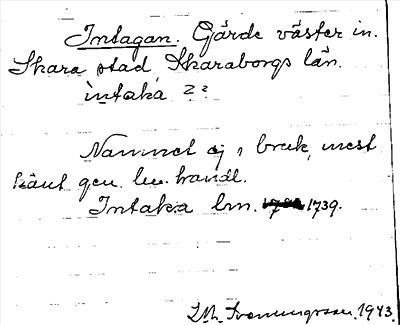 Intagan. Gärde väster in.
Skara stad, Skaraborgs län.
intaka ??
Namnet ej i bruk, mest
känt gm. lm. handl.
Intaka lm. 1739.
1943.